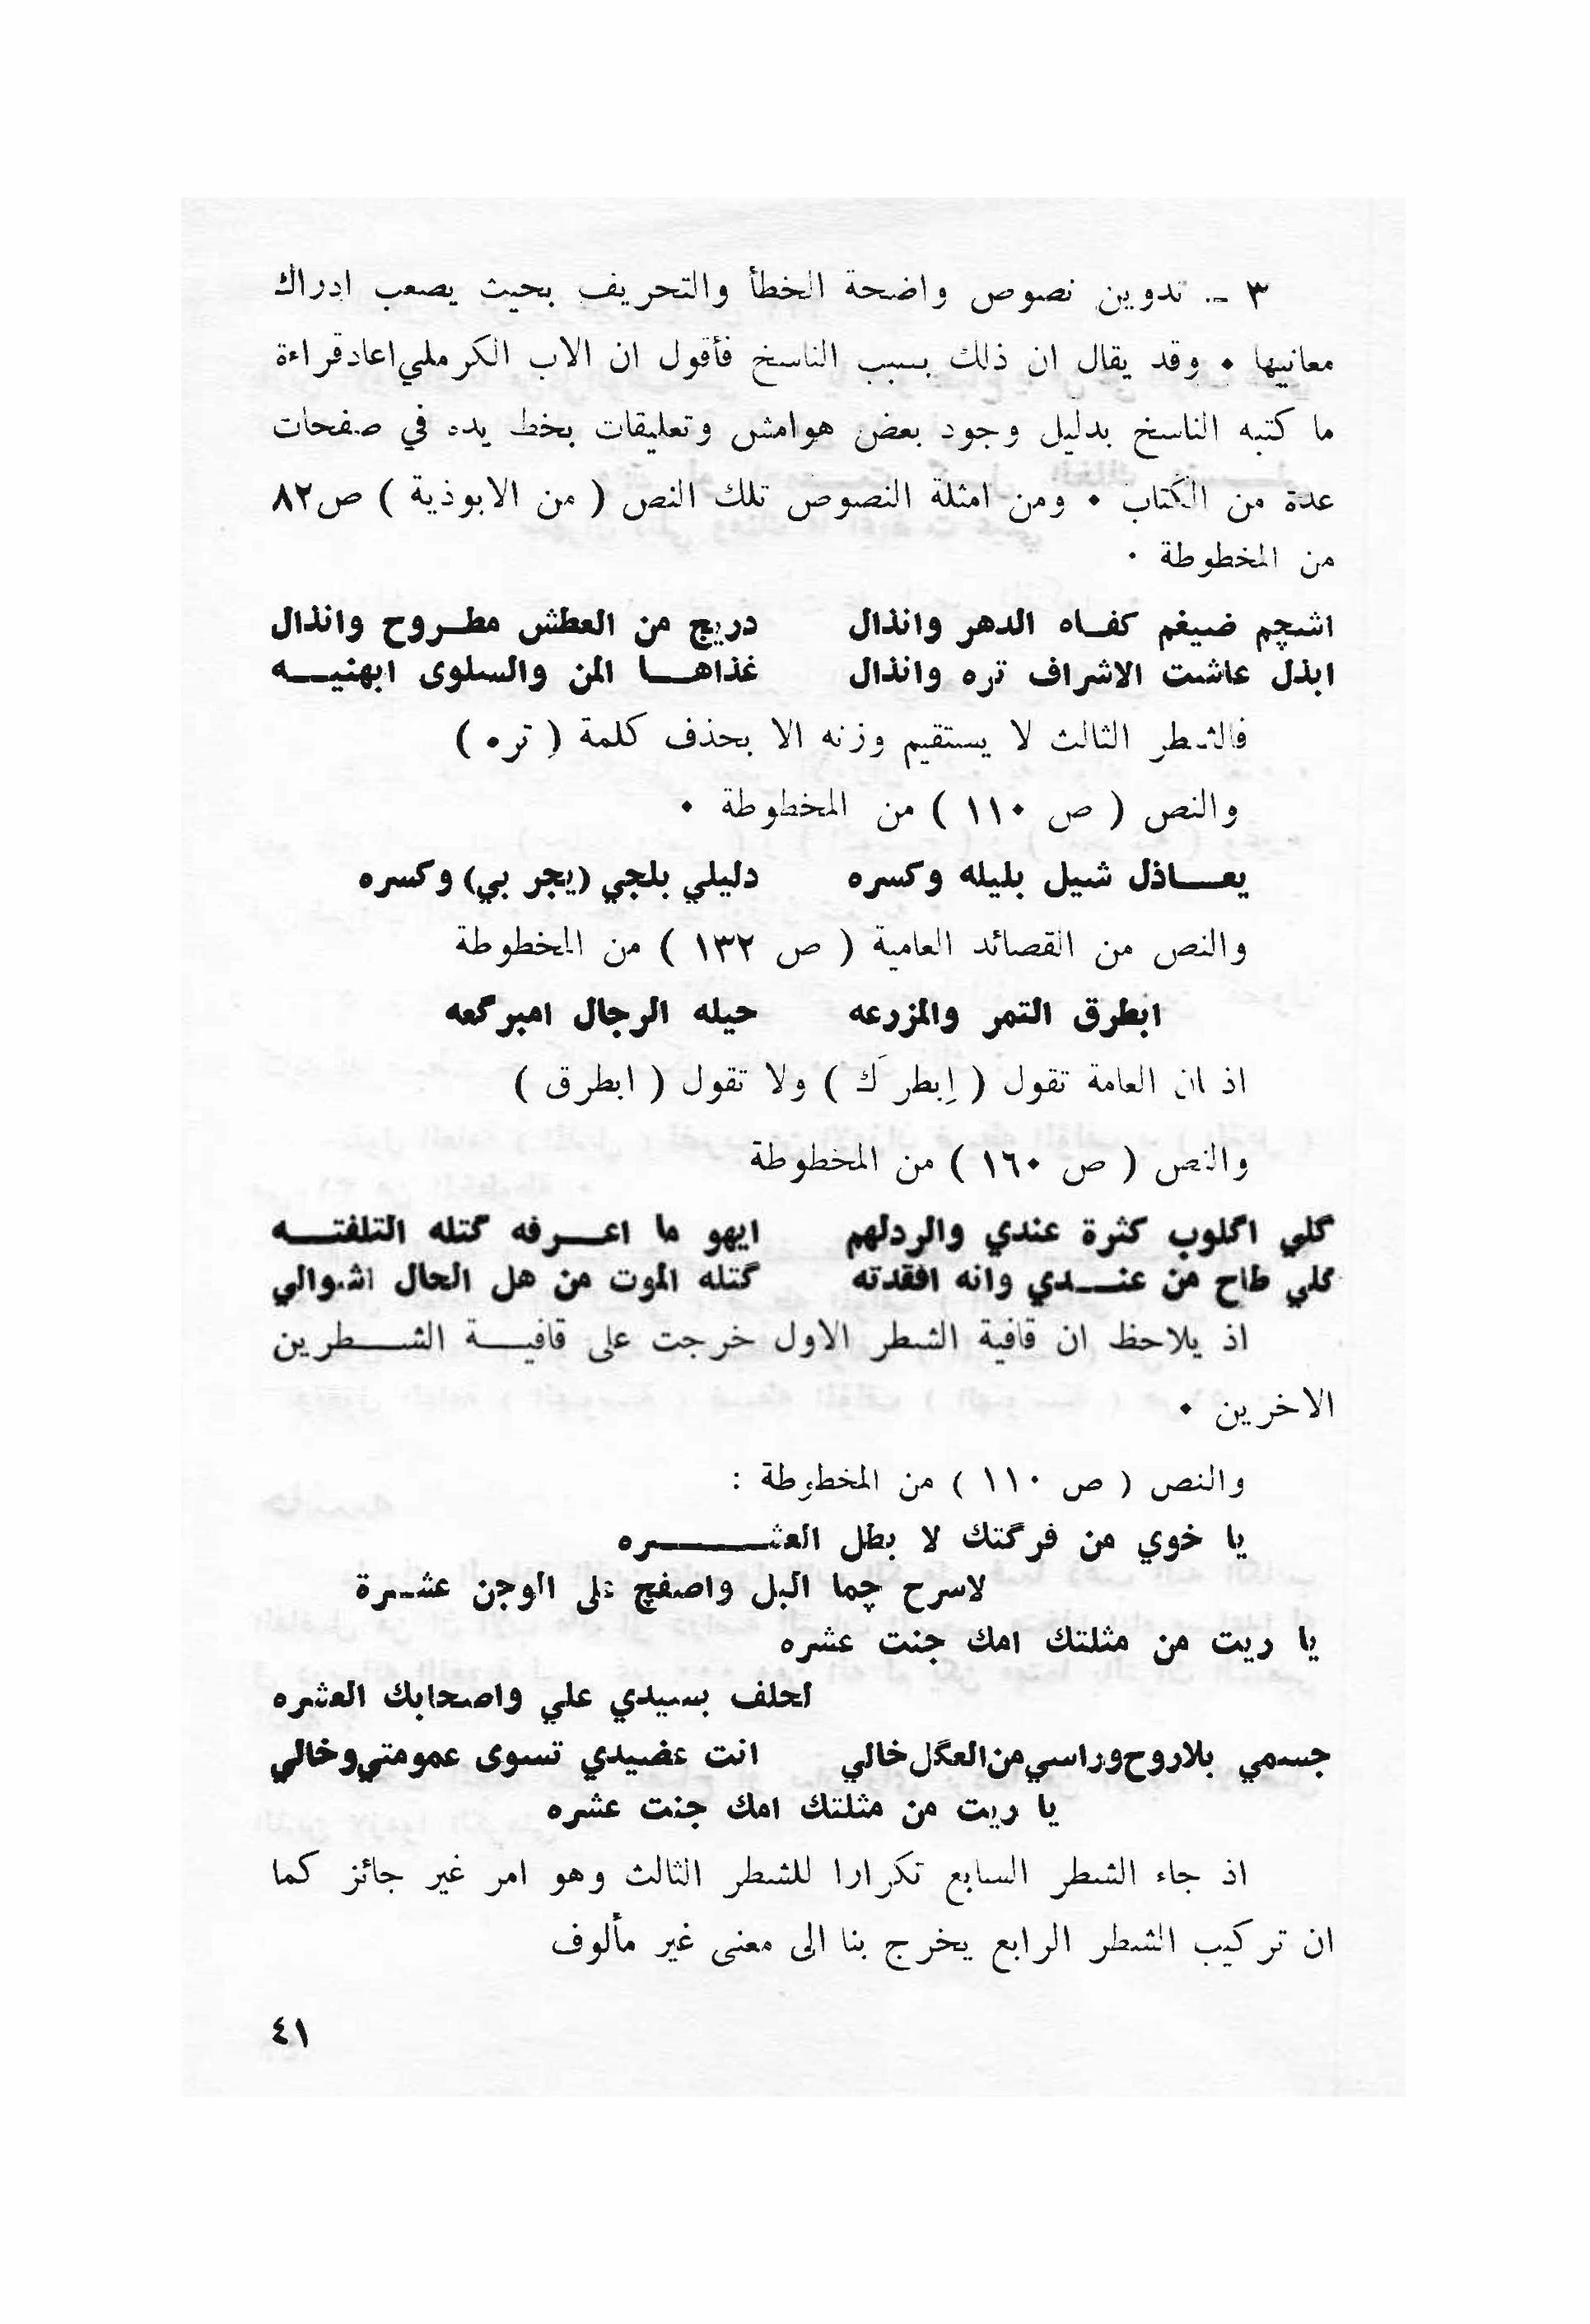 ٣ ـ تدوين نصوص واضحة الخطأ والتحريف بحيث يصعب ادراك
معانيها ٠ وقد يقال ان ذلك بسبب الناسخ فأقول ان الاب الكرملي اعاد قراءة
ما كتبه الناسخ بدليل وجود بعض هوامش وتعليقات بخط يده في صفحات
عدة من الكتاب ٠ ومن امثلة النصوص تلك النص ( من الابوذية ) ص٨٢
من المخطوطة ٠
اشچم ضيغم كفـاه الدهر وانذال دريچ من العطش مطـروح وانذال
ابذل عاشت الاشراف تره وانذال غذاهـا المن والسلوى ابهنيـه
فالشطر الثالث لا يستقيم وزنه الا بحذف كلمة ( تره )
والنص ( ص ١١٠ ) من المخطوطة ٠
يعـاذل شيل بليله وكسره دليلي بلچي (يجر بي) وكسره
والنص من القصائد العامية ( ص ١٣٢ ) من المخطوطة
ابطرق التمر والمزرعه حيله الرجال امبرگعه
اذ ان العامة تقول ( إبطرَ ك ) ولا تقول ( ابطرق )
والنص ( ص ١٦٠ ) من المخطوطة
گلي اگلوب كثرة عندي والردلهم ايهو ما اعـرفه گتله التلفتـه
گلي طاح من عنـدي وانه افقدته گتله الموت من هل الحال اشوالي
اذ يلاحظ ان قافية الشطر الاول خرجت على قافيـة الشـطرين
الاخرين ٠
والنص ( ص ١١٠ ) من المخطوطة :
يا خوي من فرگتك لا بطل العشـره
لاسرح چما البل واصفچ على الوجن عشـرة
يا ريت من مثلتك امك جنت عشره
احلف بسيدي علي واصحابك العشره
جسمي بلاروح وراسي من العگل خالي انت عضيدي تسوى عمومتي وخالي
يا ريت من مثلتك امك جنت عشره
اذ جاء الشطر السابع تكرارا للشطر الثالث وهو امر غير جائز كما
ان تركيب الشطر الرابع يخرج بنا الى معنى غير مألوف
٤١